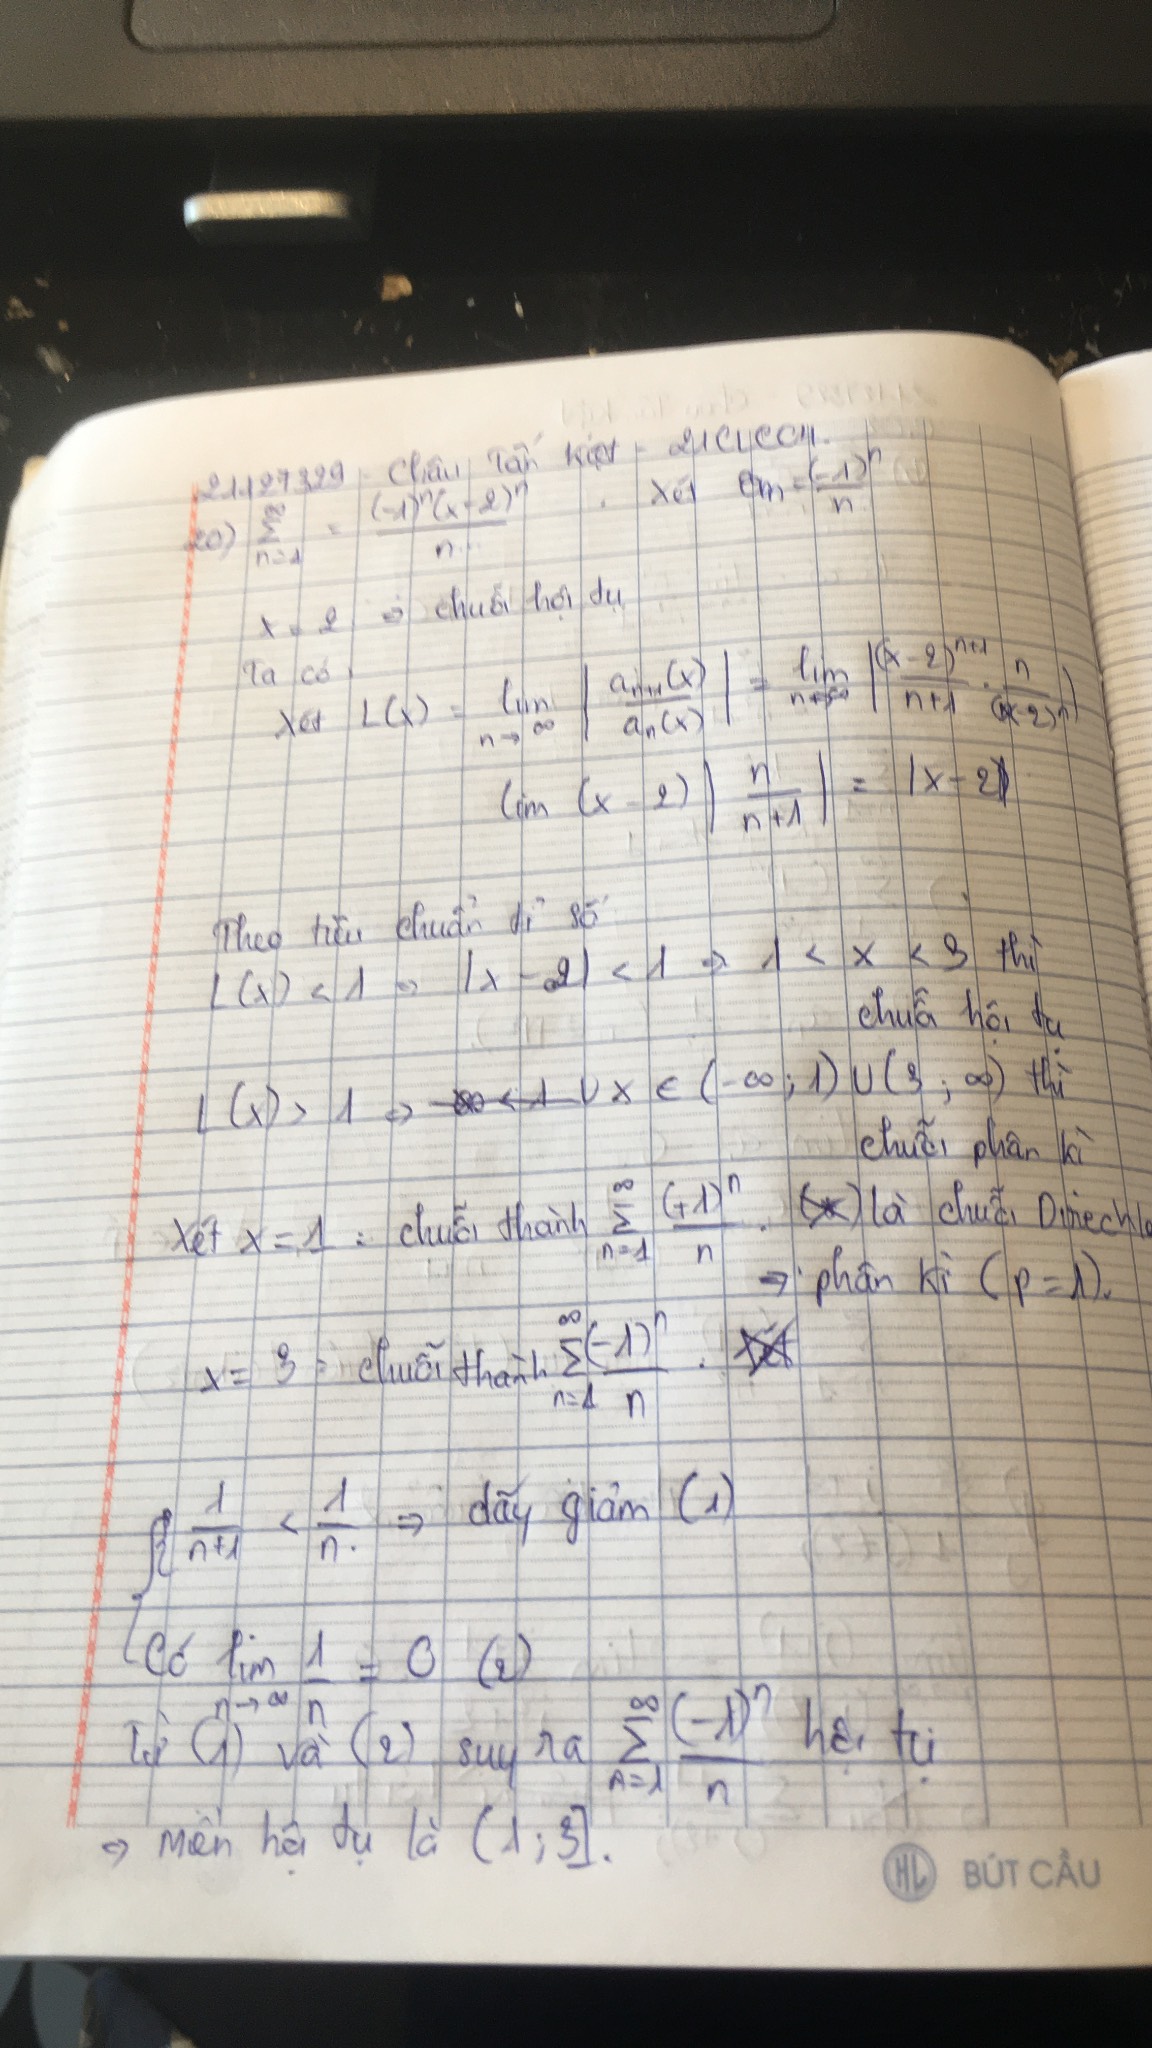 21127329 - Châu Tấn Kiệt - 21CLC04.
20) ∑_{n=1}^{∞} = \frac{(-1)^n (x-2)^n}{n} . Xét = \frac{(-1)^n}{n}
x = 2 ⇒ chuỗi hội tụ
Ta có
Xét L(x) = lim_{n→∞} |\frac{a_{n+1}(x)}{a_n(x)}| = lim_{n→∞} |\frac{(x-2)^{n+1}}{n+1} . \frac{n}{(x-2)^n}|
lim (x-2) |\frac{n}{n+1}| = |x-2|
Theo tiêu chuẩn tỉ số
L(x) < 1 ⇒ |x-2| < 1 ⇒ 1 < x < 3 thì
chuỗ hội tụ
L(x) > 1 ⇒ x ∈ (-∞; 1) ∪ (3; ∞) thì
chuỗi phân kì
Xét x = 1 : chuỗi thành ∑_{n=1}^{∞} \frac{(+1)^n}{n} . là chuỗi
⇒ phân kì (p = 1).
x = 3 : chuỗi thành ∑_{n=1}^{∞} \frac{(-1)^n}{n} .
{ \frac{1}{n+1} < \frac{1}{n} ⇒ dãy giảm (1)
Có lim_{n→∞} \frac{1}{n} = 0 (2)
Từ (1) và (2) suy ra ∑_{n=1}^{∞} \frac{(-1)^n}{n} hội tụ
⇒ miền hội tụ là (1; 3].
HL BÚT CẦU